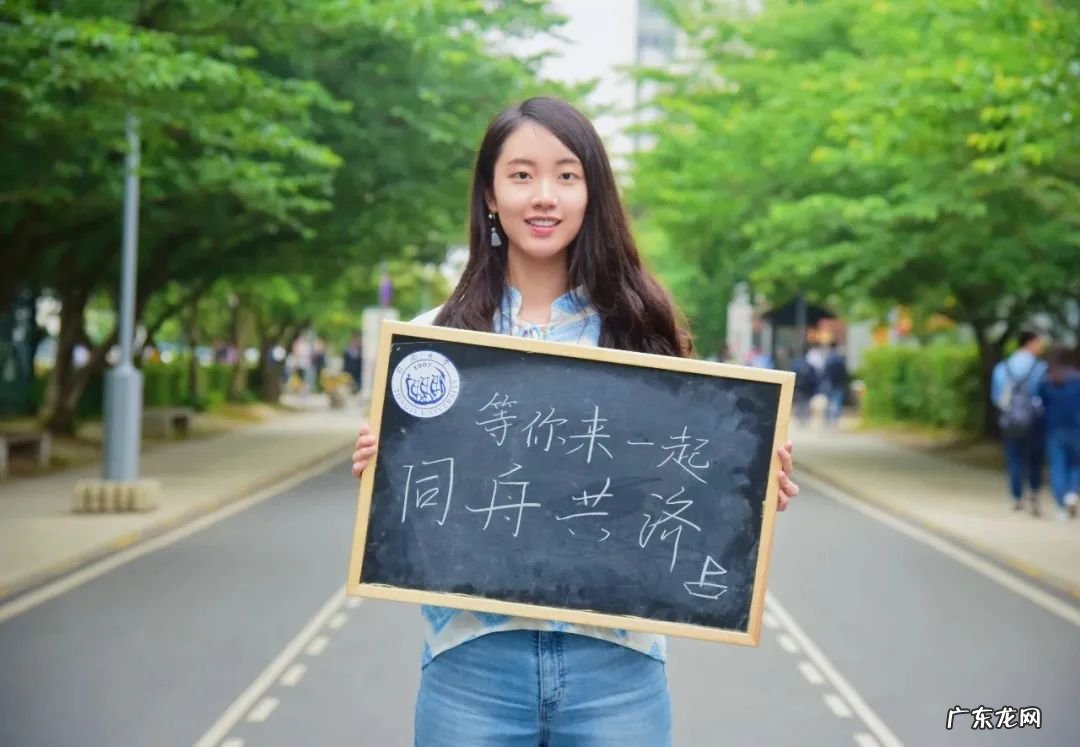 1907
等你来一起
同舟共济
广东龙网